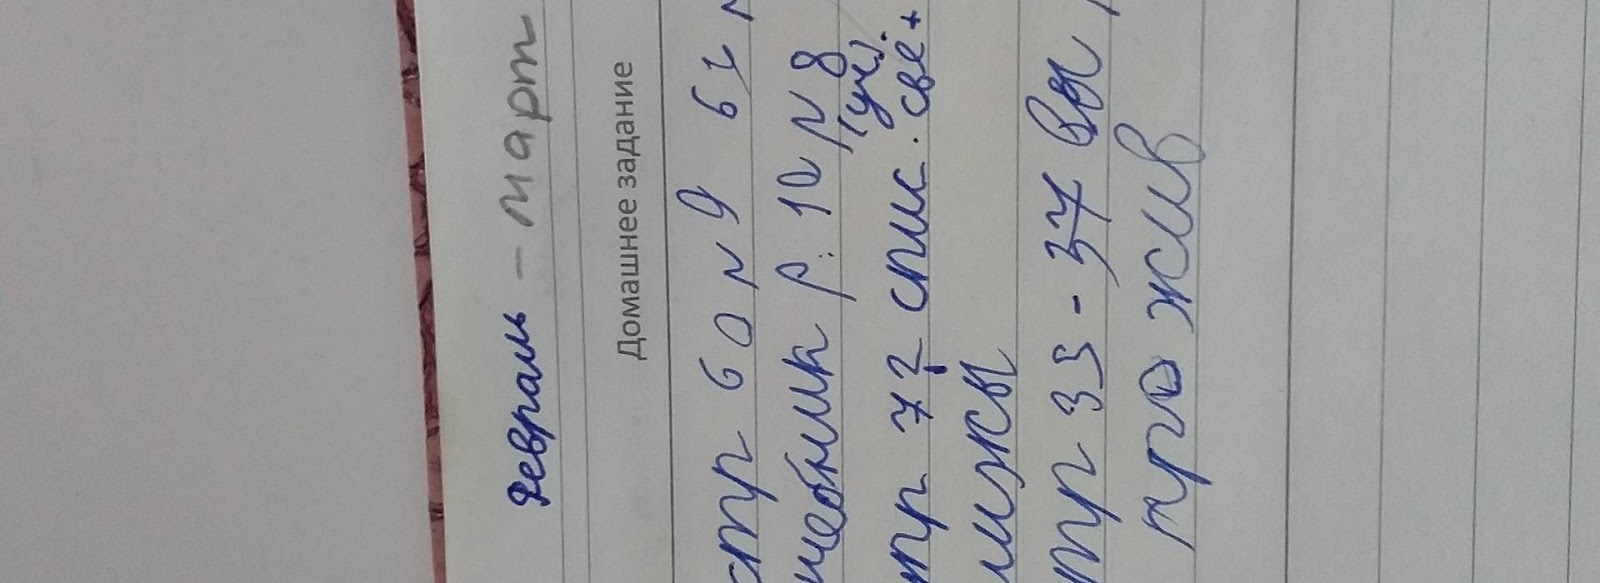 Февраль - март
Домашнее задание
стр 60 N 9 61 N
учебник р. 10 N 8
(уч).
тр 72 спис. свё +
лижы
тр 35 - 37 вы
про жив